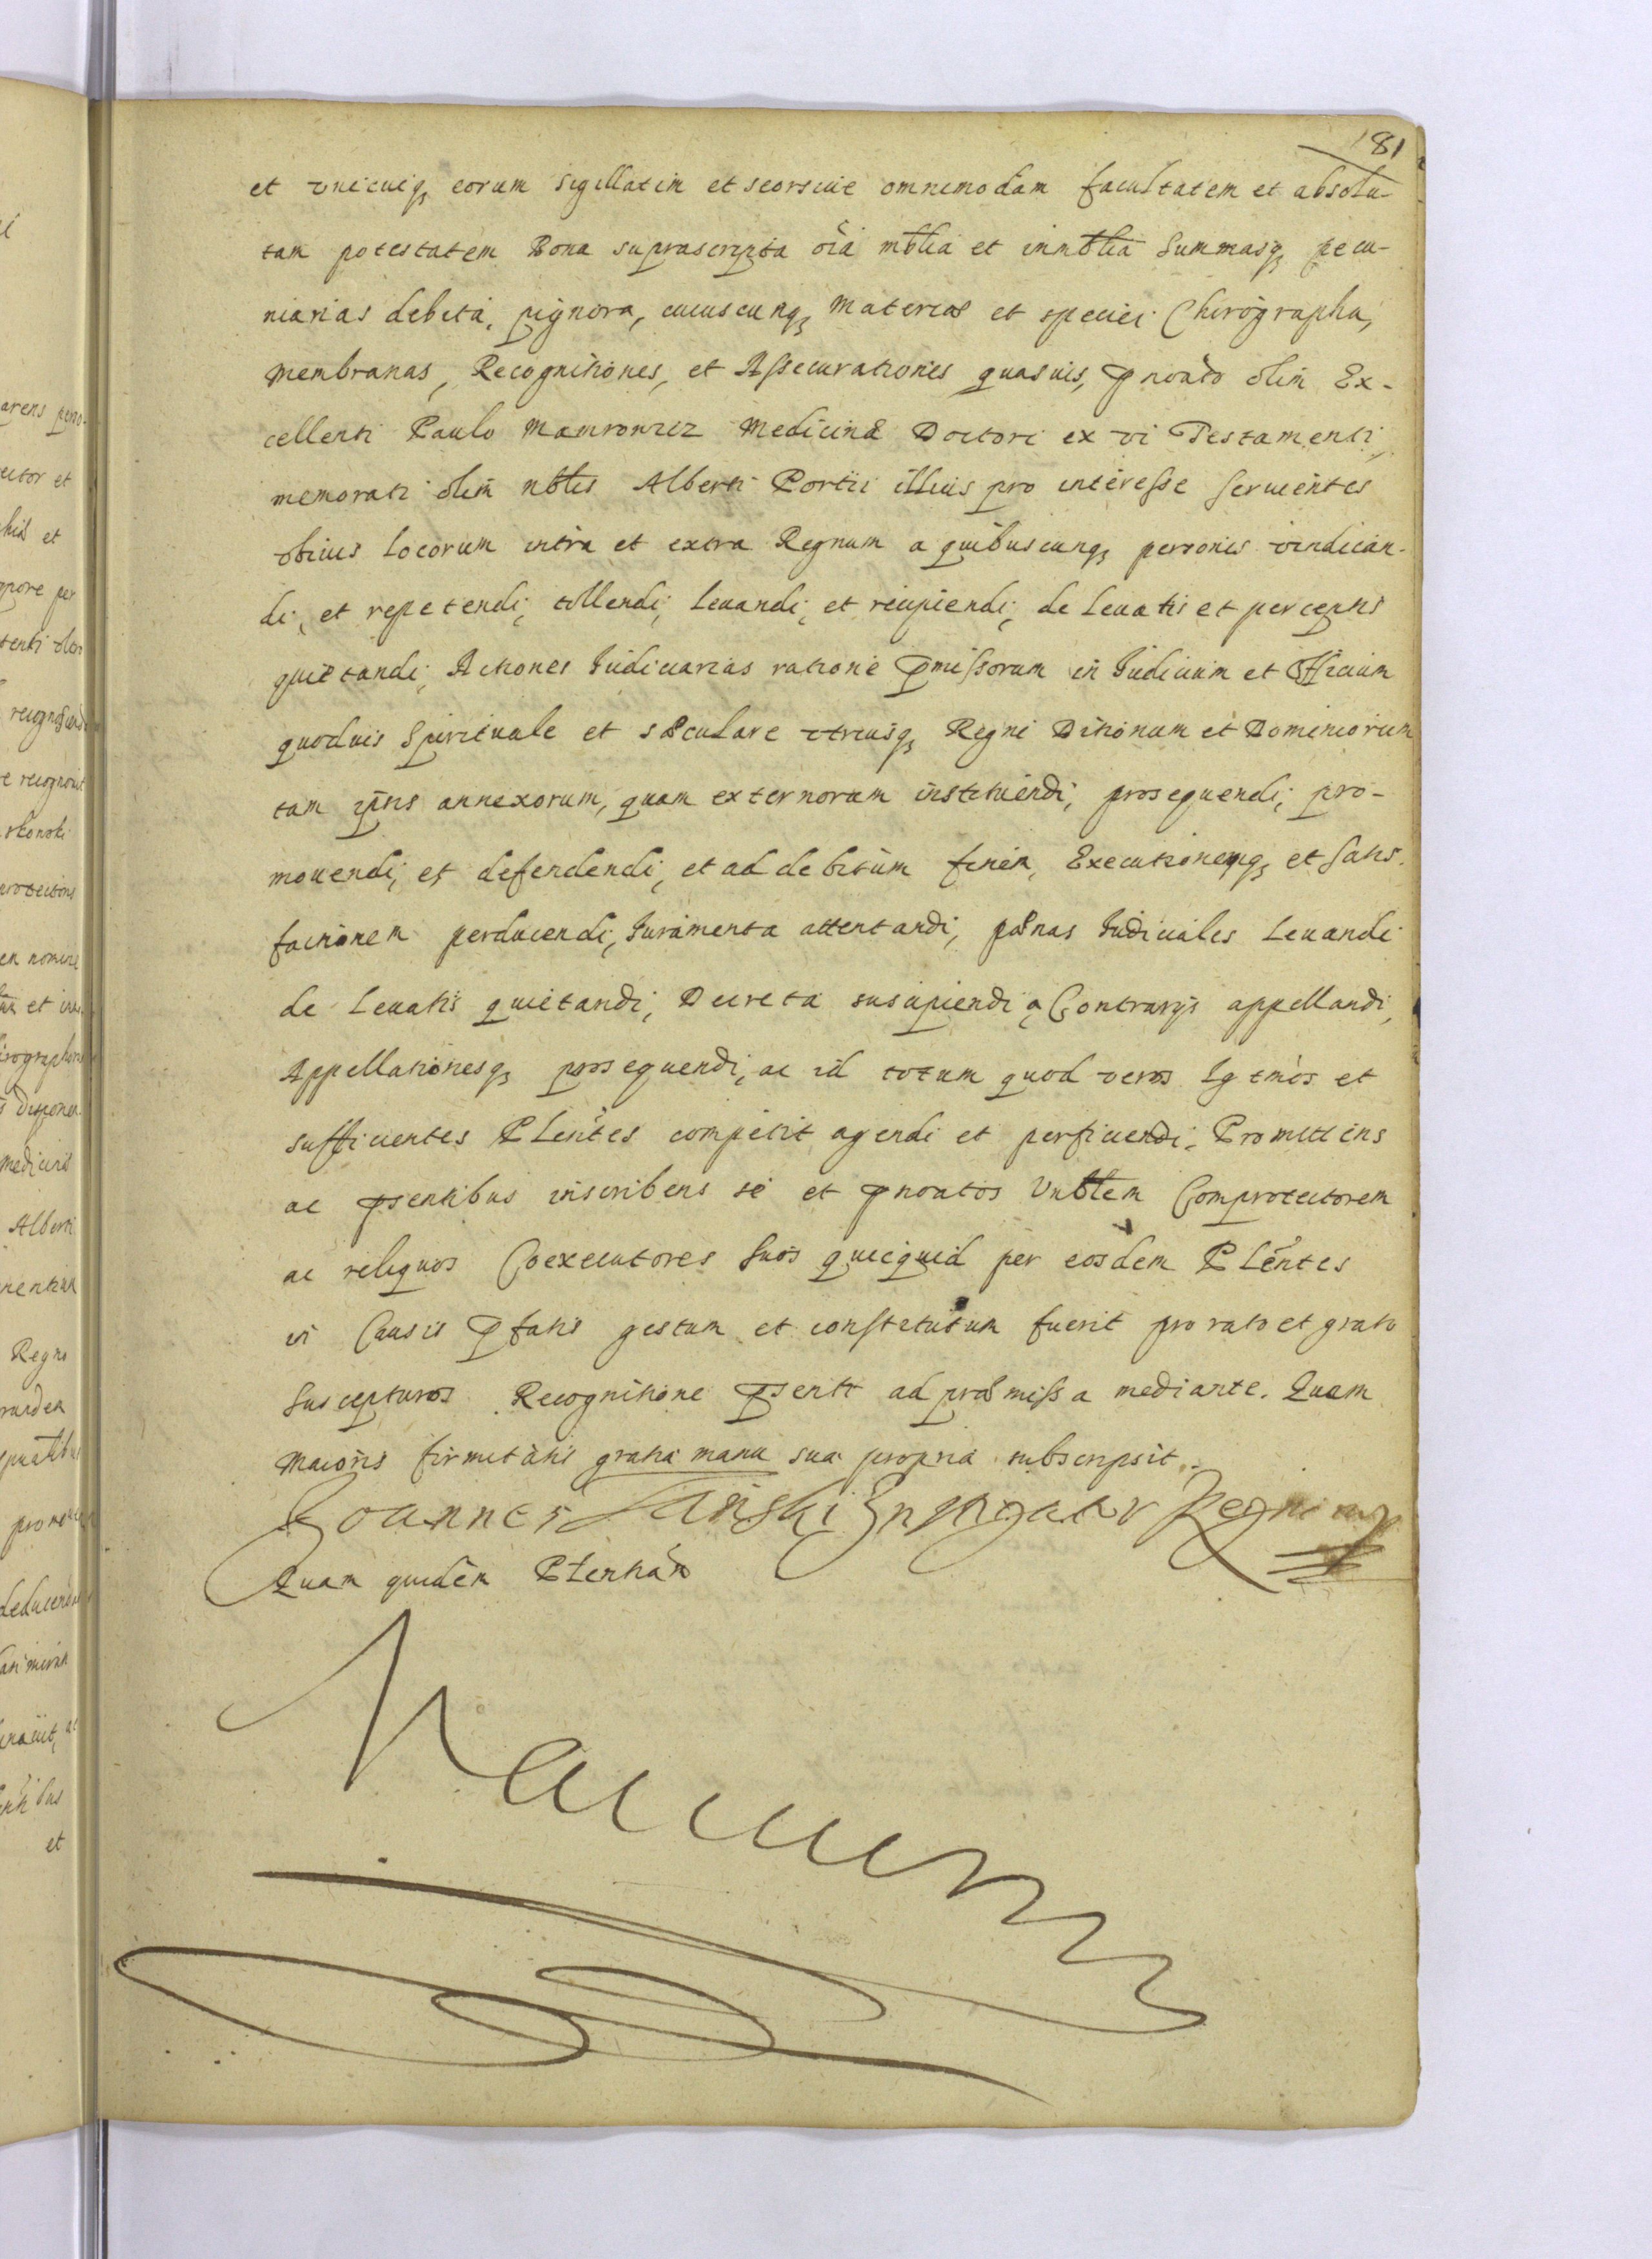 181
et vnicuiq3 eorum sigillatim et seorsiue omnimodam facultatem et absolu-
tam potestatem Bona suprascripta oīa mblia et immblia Summasq3 pecu-
niarias debita, pignora, cuiuscunq3 materiæ et speciei Chirographa,
Membranas, Recognitiones, et Assecurationes quasuis, pnoāto olim Ex-
cellenti Paulo Mamrowicz Medicinæ Doctori ex vi Testamenti,
memorati olim nblis Alberti Portii illius pro interesse seruientes
vbiuis locorum intra et extra Regnum a quibuscunq3 personis vindican-
di, et repetendi, tollendi, leuandi, et recipiendi, de leuatis et perceptis
quietandi, Actiones Iudiciarias ratione pmissorum in Iudicium et Officium
quoduis Spirituale et sæculare vtriusq3 Regni Ditionum et Dominiorum
tam ipsis annexorum, quam externorum instituendi, prosequendi, pro-
mouendi, et defendendi, et ad debitum finem, Executionemq3 et satis-
factionem perducendi, Iuramenta attentandi, pænas Iudiciales leuandi
de leuatis quietandi, Decreta suscipiendi a Contrarys appellandi,
Appellationesq3 prosequendi, ac id totum quod veros lgtmos et
sufficientes Plentes competit agendi et perficiendi. Promittens
ac psentibus inscribens se et pnoatos Vnblem Comprotectorem
ac reliquos Coexecutores suos quicquid per eosdem Plentes
in Causis pfatis gestum et constitutum fuerit pro rato et grato
suscepturos Recognitione psenti ad præmissa mediante. Quam
Maioris firmitatis gratia manu sua propria subscripsit.
Joannes Regni
Quam quidem Plentiam